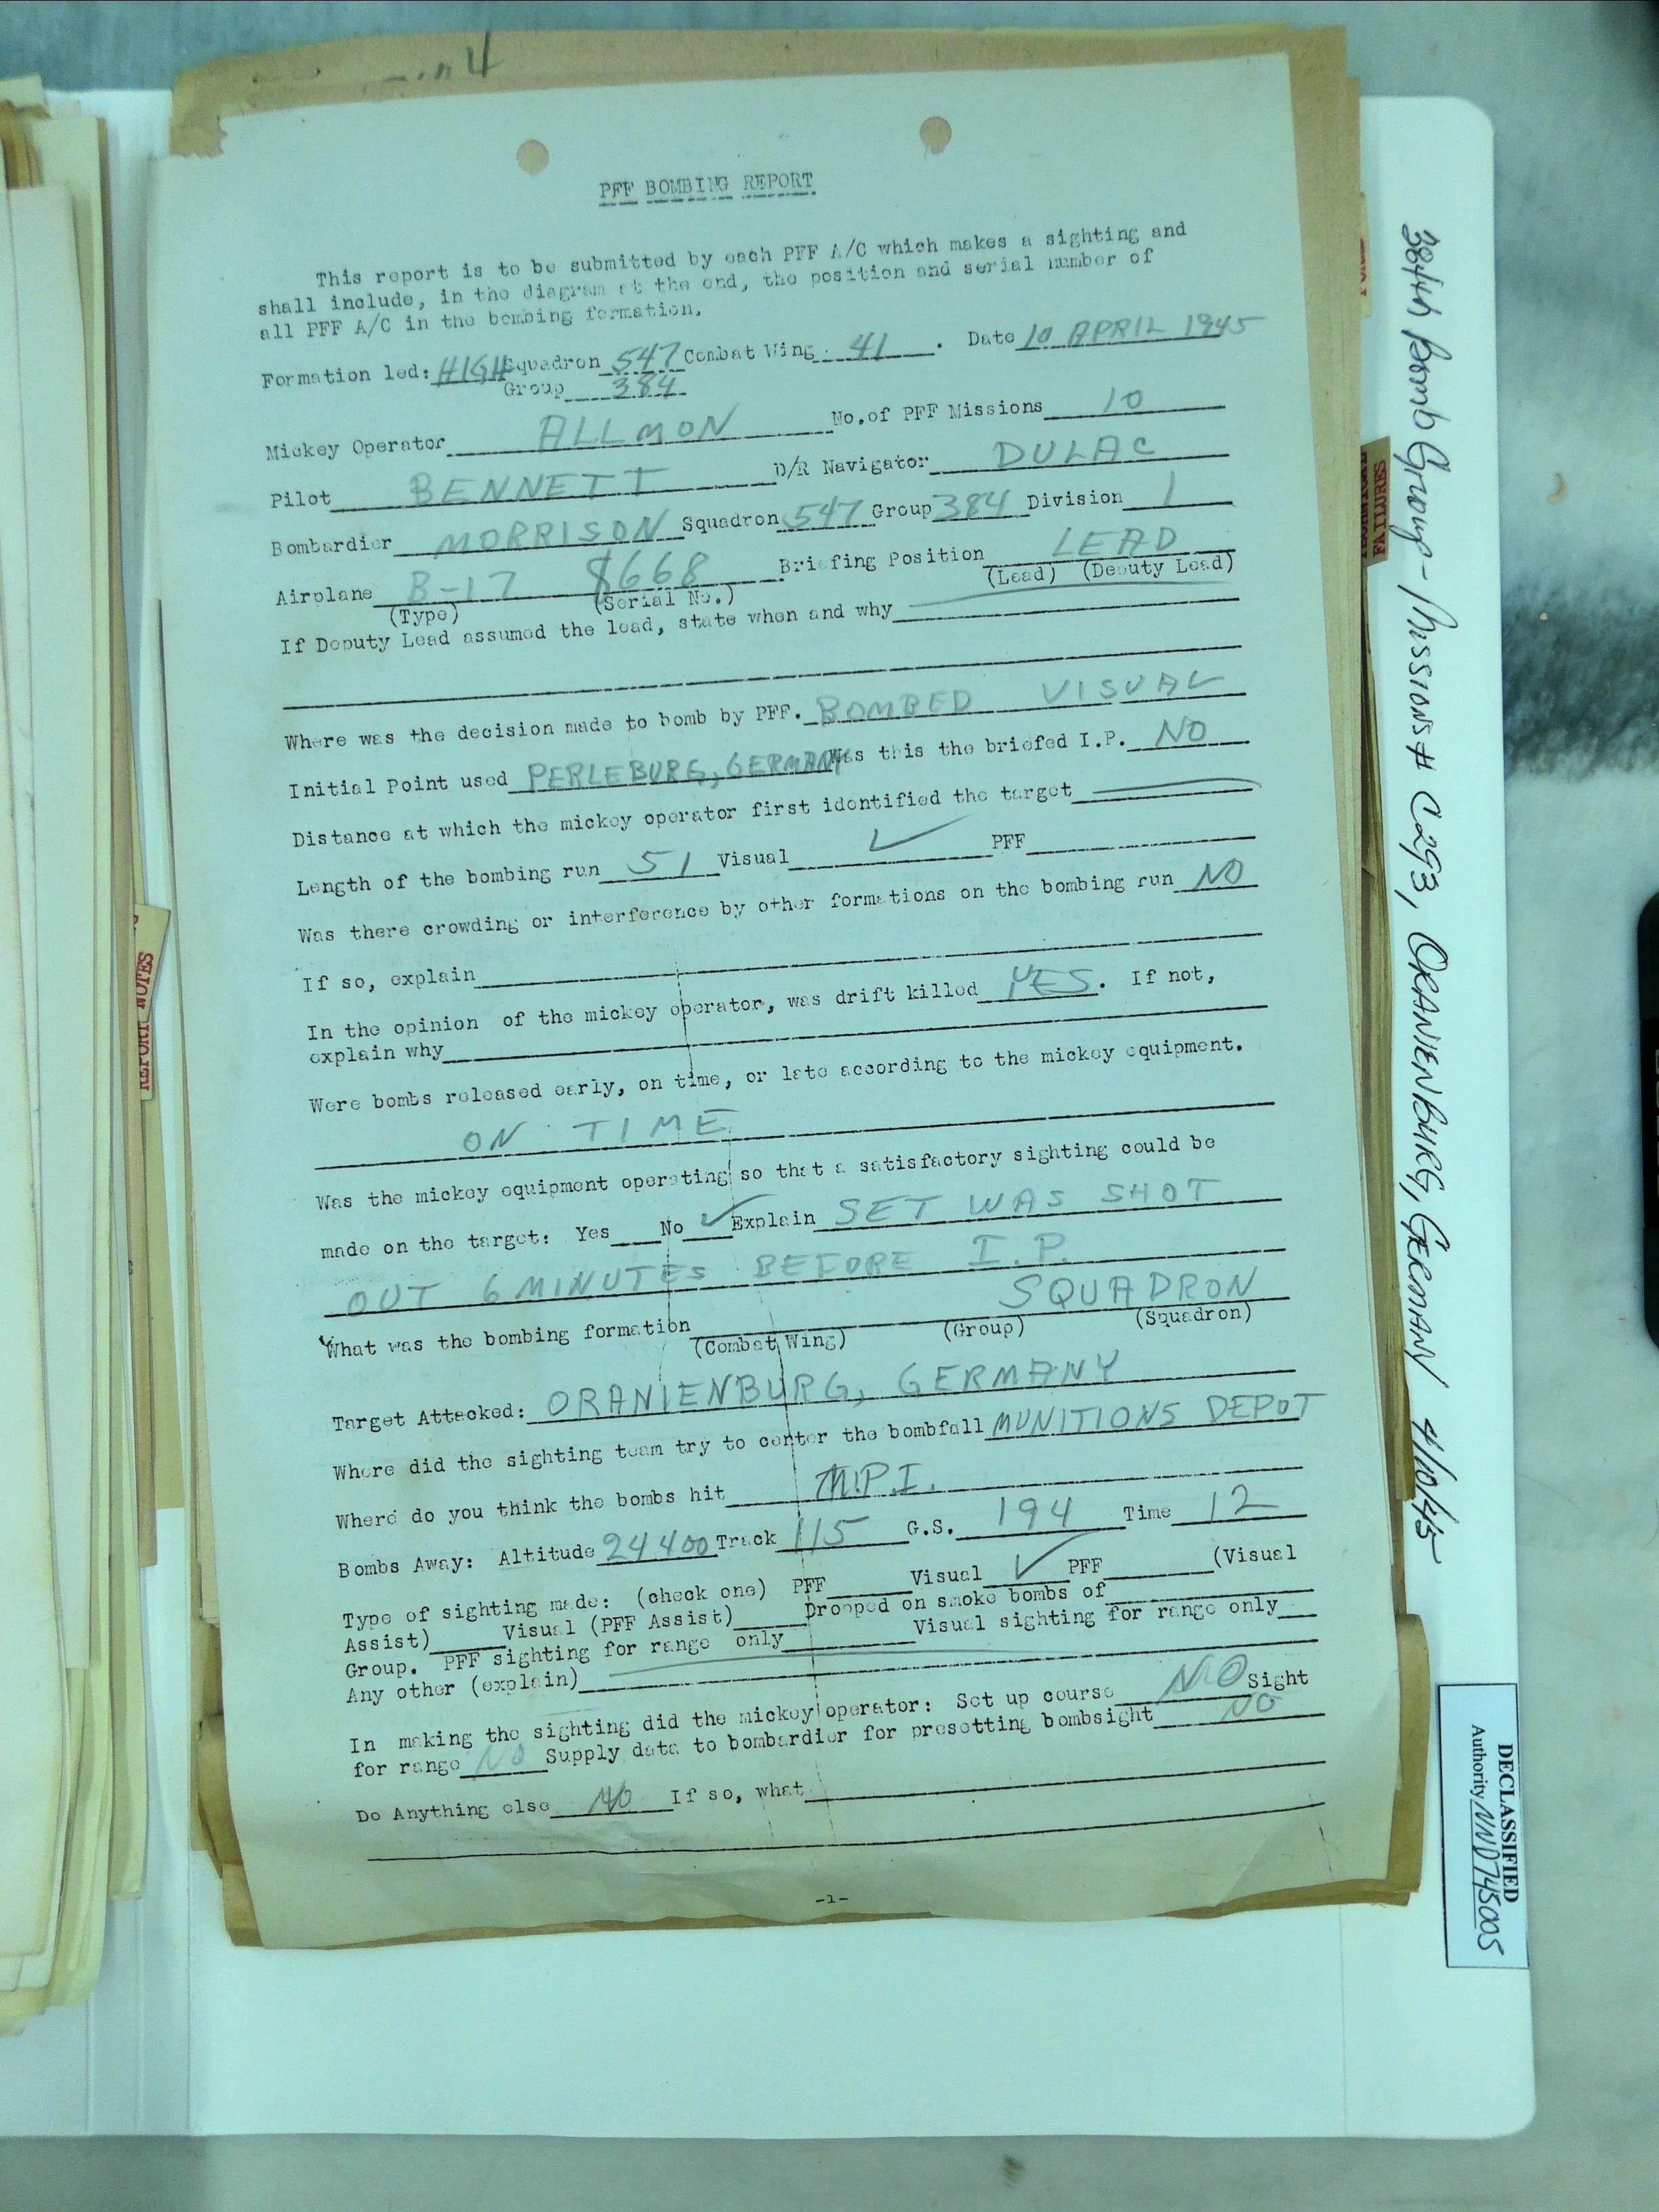 PFF BOMBING REPORT
This report is to be submitted by each PFF A/C which makes a sighting and
shall include, in the diagram at the end, the position and serial number of
all PFF A/C in the bombing formation.
Formation led: HIGH Squadron 547 Combat Wing 41. Date 10 APRIL 1945
Group 384
Mickey Operator ALLMON No. of PFF Missions 10
Pilot BENNETT D/R Navigator DULAC
Bombardier MORRISON Squadron 547 Group 384 Division 1
Airplane B-17 8668 Briefing Position LEAD
(Type) (Serial No.) (Lead) (Deputy Lead)
If Deputy Lead assumed the lead, state when and why
Where was the decision made to bomb by PFF. BOMBED VISUAL
Initial Point used PERLEBURG, GERMANY Was this the briefed I.P. NO
Distance at which the mickey operator first identified the target
Length of the bombing run 51 Visual ✓ PFF
Was there crowding or interference by other formations on the bombing run NO
If so, explain
In the opinion of the mickey operator, was drift killed YES. If not,
explain why
Were bombs released early, on time, or late according to the mickey equipment.
ON TIME
Was the mickey equipment operating so that a satisfactory sighting could be
made on the target: Yes No ✓ Explain SET WAS SHOT
OUT 6 MINUTES BEFORE I.P.
What was the bombing formation SQUADRON
(Combat Wing) (Group) (Squadron)
Target Attacked: ORANIENBURG, GERMANY
Where did the sighting team try to center the bombfall MUNITIONS DEPOT
Where do you think the bombs hit M.P.I.
Bombs Away: Altitude 24400 Track 115 G.S. 194 Time 12
Type of sighting made: (check one) PFF Visual ✓ PFF (Visual
Assist) Visual (PFF Assist) Dropped on smoke bombs of
Group. PFF sighting for range only Visual sighting for range only
Any other (explain)
In making the sighting did the mickey operator: Set up course NO Sight
for range NO Supply data to bombardier for presetting bombsight NO
Do Anything else NO If so, what
-1-
384th Bomb Group - Missions # C293, ORANIENBURG, GERMANY 4/10/45
DECLASSIFIED
Authority NND745005
FAILURES
REPORT NOTES